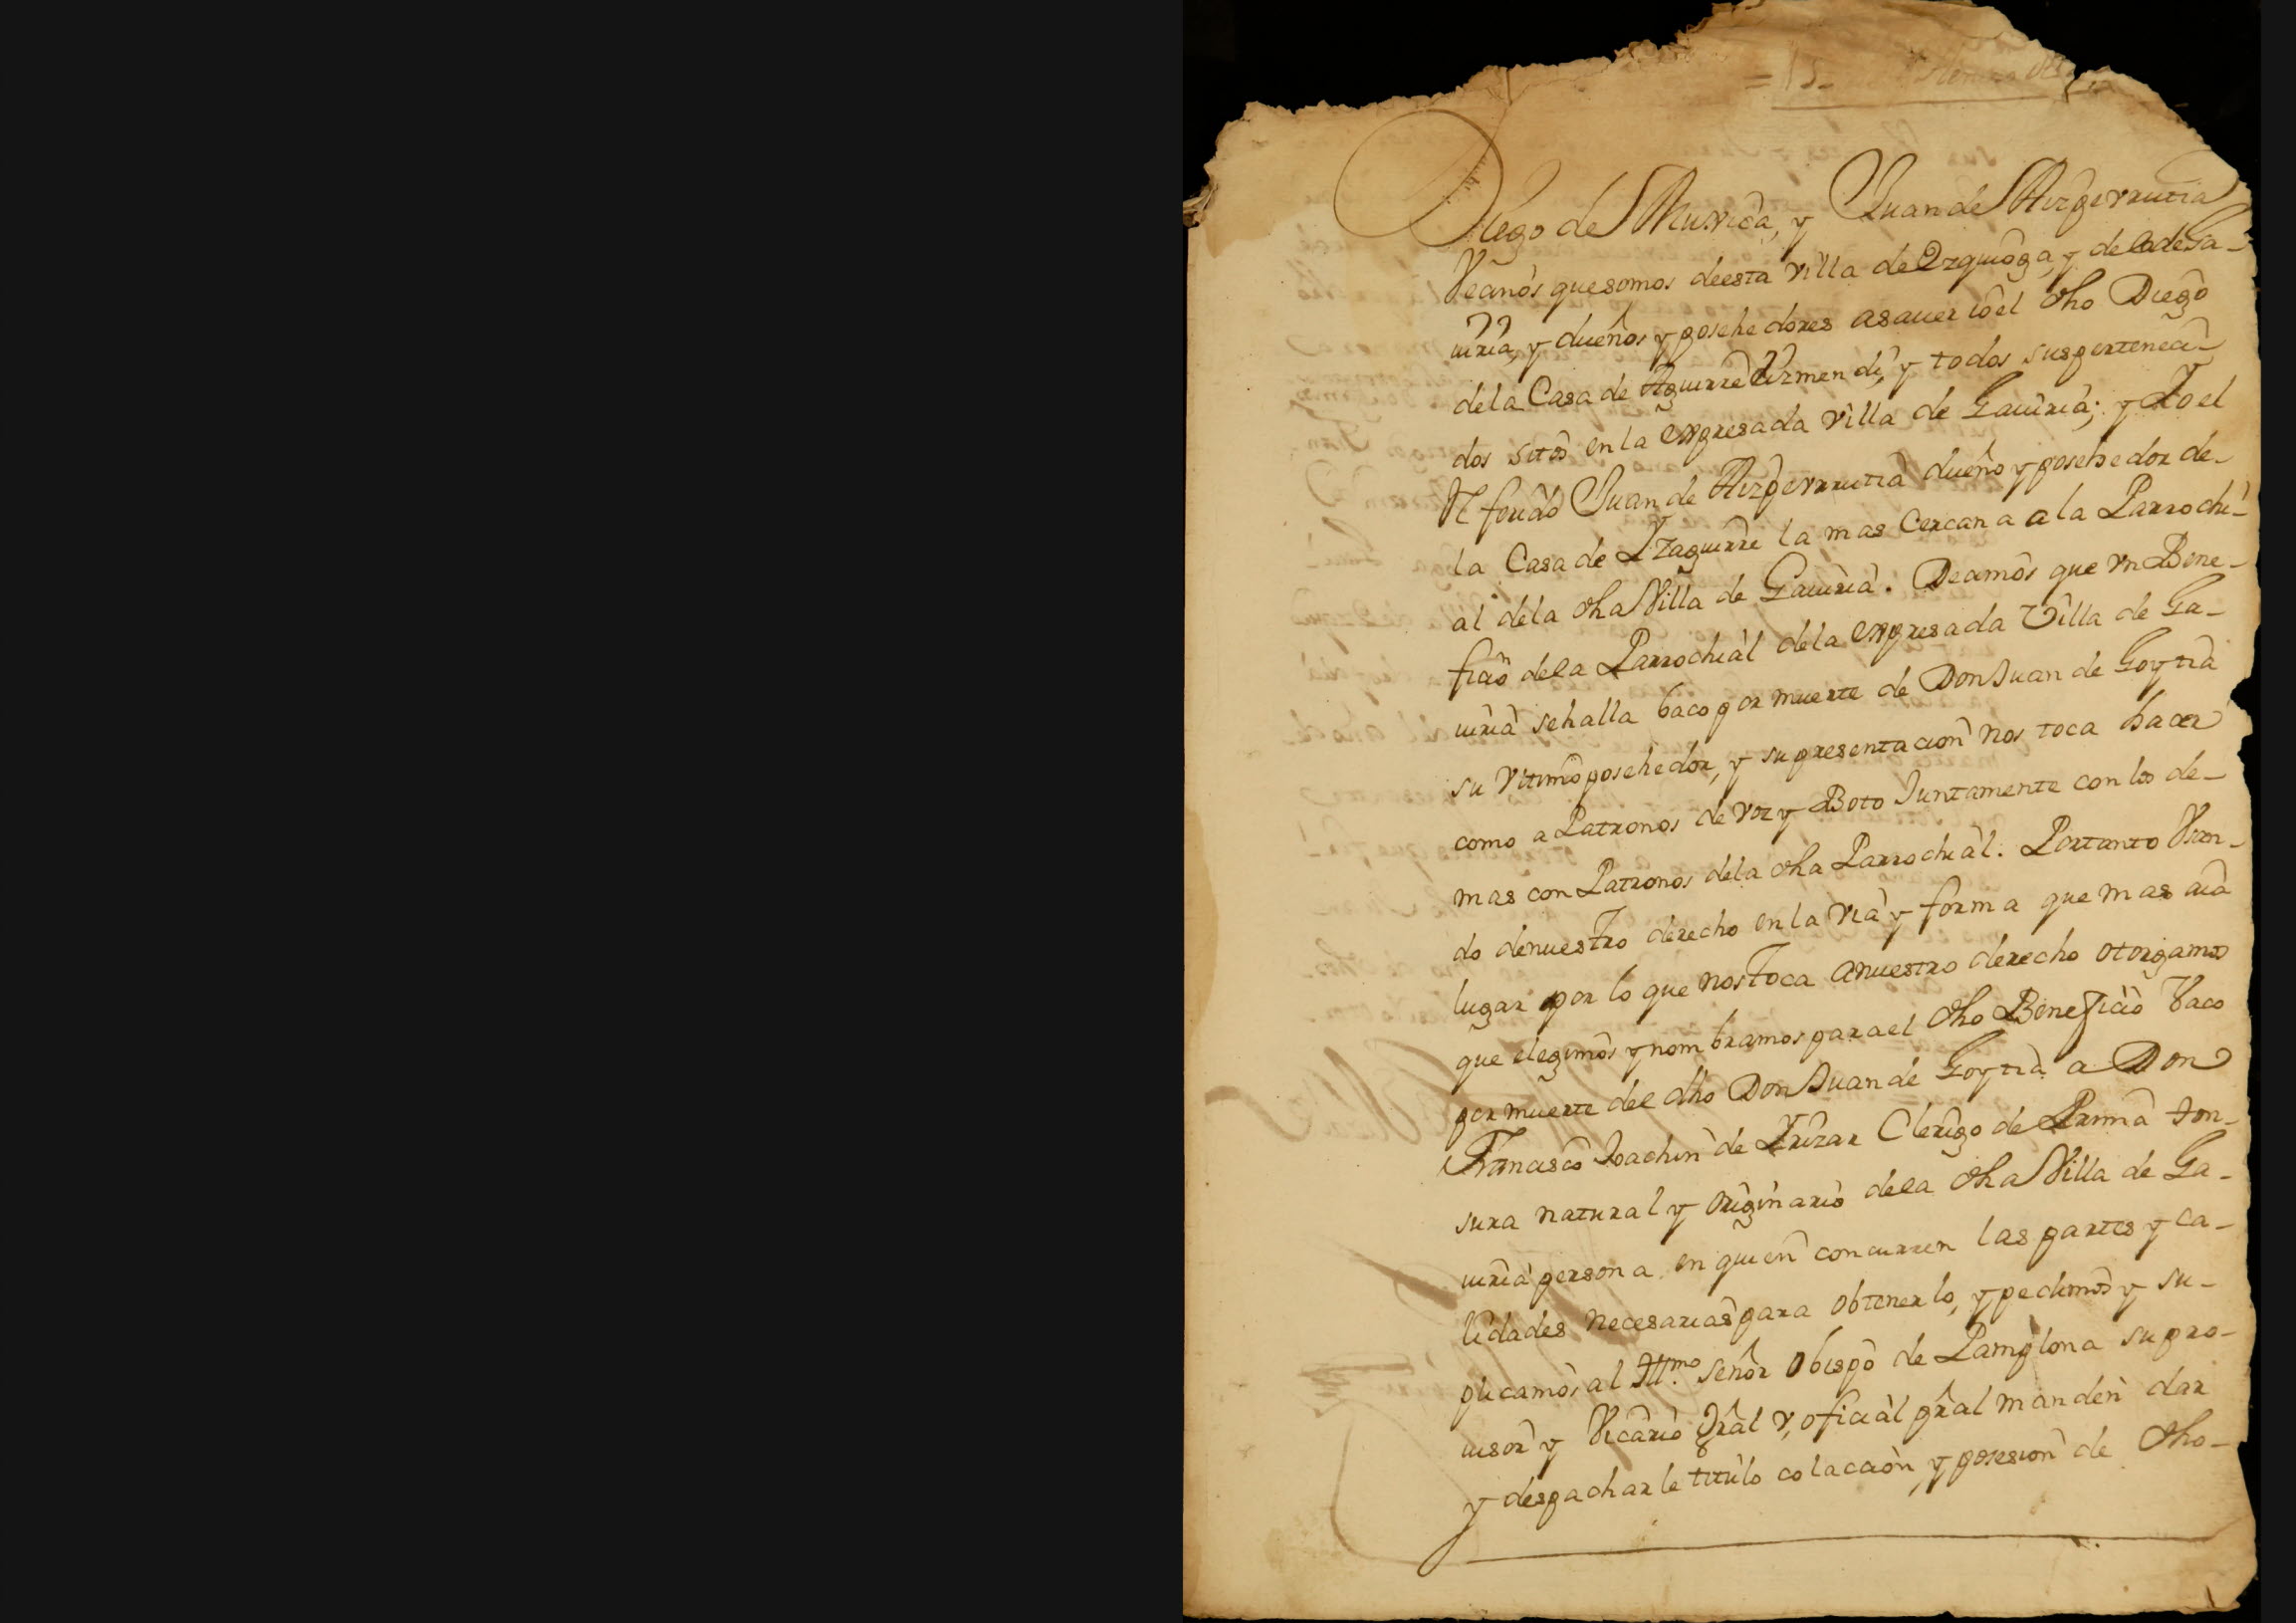 = 15 -
Diego de Muxica, y Juan de Aizpevrrutia
Vecanòs que somos de esta villa de Ezquioga, y de la de Ga-
uiria, y dueños y posehedores asauer ioel dho Diego
de la Casa de Aguirre Vrmendi, y todos sus perteneci-
dos sitos en la expresada villa de Gauiria; y Yo el
Referido Juan de Aizpevrrutia dueño y posehedor de-
la Casa de Yzaguirre la mas Cercana a la Parrochi-
al de la dha Villa de Gauiria. Decimos que vn Bene-
ficio de la Parrochial de la expresada Villa de Ga-
uiria se halla baco por muerte de Don Juan de Goytia
su Vltimo posehedor, y su presentacion nos toca hacer
como a Patronos de voz y Boto Juntamente con los de-
mas con Patronos de la dha Parrochial. Portanto Vsan-
do de nuestro derecho en la via y forma que mas aia
lugar por lo que nos Toca a nuestro derecho otorgamos
que elegimos y nombramos para el dho Beneficio Vaco
por muerte del dho Don Juan de Goytia a Don
Francisco Joachin de Yrizar Clerigo de Prima ton-
sura natural y originario de la dha Villa de Ga-
uiria persona en quien concurren las partes y ca-
lidades necesarias para obtenerlo, y pedimos y su-
plicamos al Ill.mo señor Obispo de Pamplona su pro-
uisor y Vicario Gral y, oficial gral manden dar
y despachar le titulo colacion, y posesion de dho-